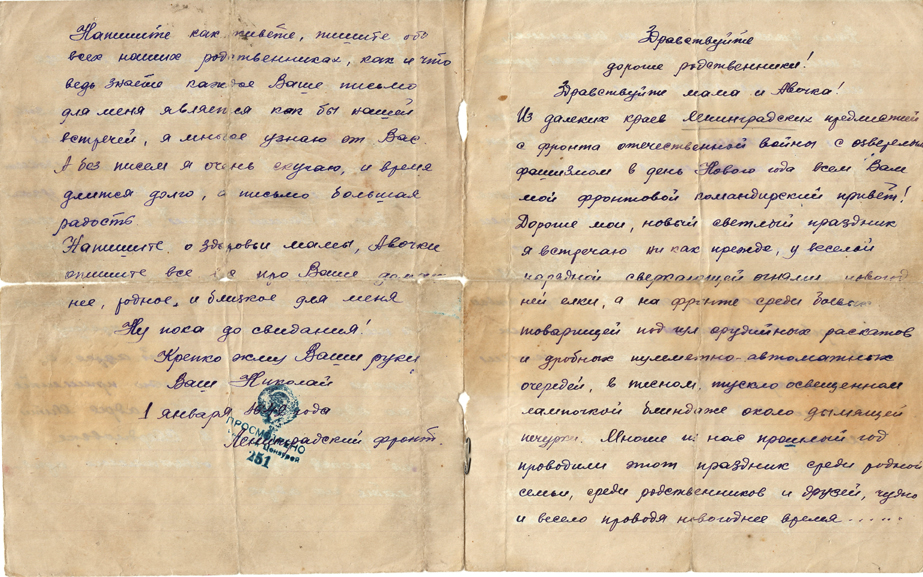 Напишите как живёте, пишите обо
всех наших родственниках, как и что
ведь знаете каждое Ваше письмо
для меня является как бы нашей
встречей, я многое узнаю от Вас.
А без писем я очень скучаю, и время
длится долго, а письмо большая
радость.
Напишите о здоровьи мамы, Авочки
опишите все про Ваше
нее, родное, и близкое для меня
Ну пока до свидания!
Крепко жму Ваши руки
Ваш Николай
1 января года
Ленинградский фронт.
ПРОСМОТРЕНО
Военной Цензурой
251
Здравствуйте
дорогие родственники!
Здравствуйте мама и Авочка!
Из далеких краев Ленинградских предместий
с фронта отечественной войны с озверелым
фашизмом в день Нового года всем Вам
мой фронтовой командирский привет!
Дорогие мои, новый светлый праздник
я встречаю ни как прежде, у веселой
нарядной сверкающей огнями новогод
ней елки, а на фронте среди боевых
товарищей под гул орудийных раскатов
и дробных пулеметно-автоматных
очередей, в тесном, тускло освещенном
лампочкой блиндаже около дымящей
печурки. Многие из нас прошлый год
проводили этот праздник среди родной
семьи, среди родственников и друзей, чудно
и весело проводя новогоднее время......